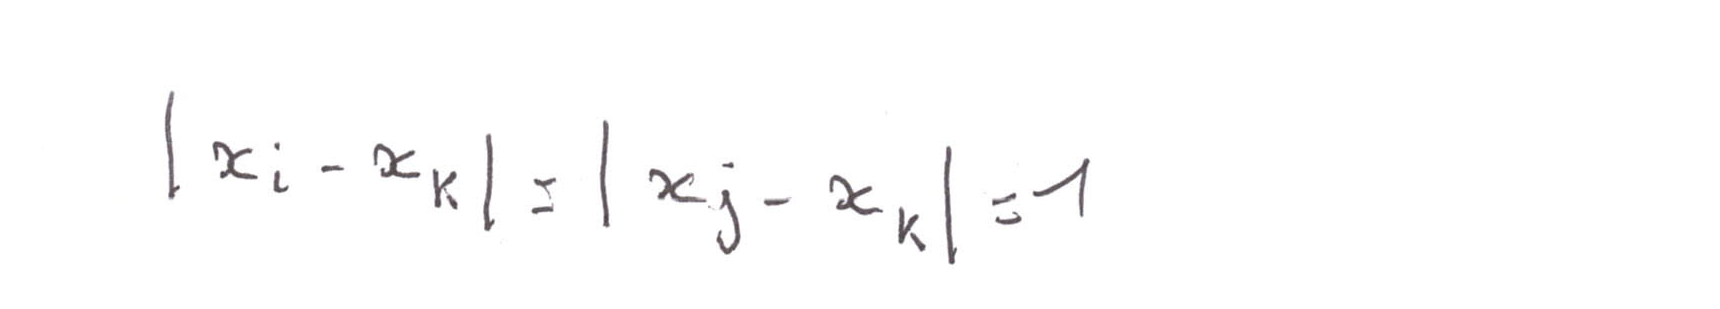 |x_i - x_k| = |x_j - x_k| = 1